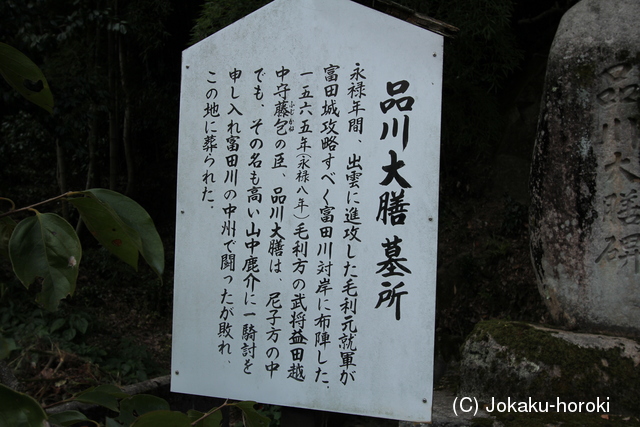 品川大膳 墓所
永禄年間、出雲に進攻した毛利元就軍が
富田城攻略すべく富田川対岸に布陣した。
一五六五年(永禄八年)毛利方の武将益田越
中守藤包の臣、品川大膳は、尼子方の中
でも、その名も高い山中鹿介に一騎討を
申し入れ富田川の中州で闘ったが敗れ、
この地に葬られた。
品川大膳碑
(C) Jokaku-horoki